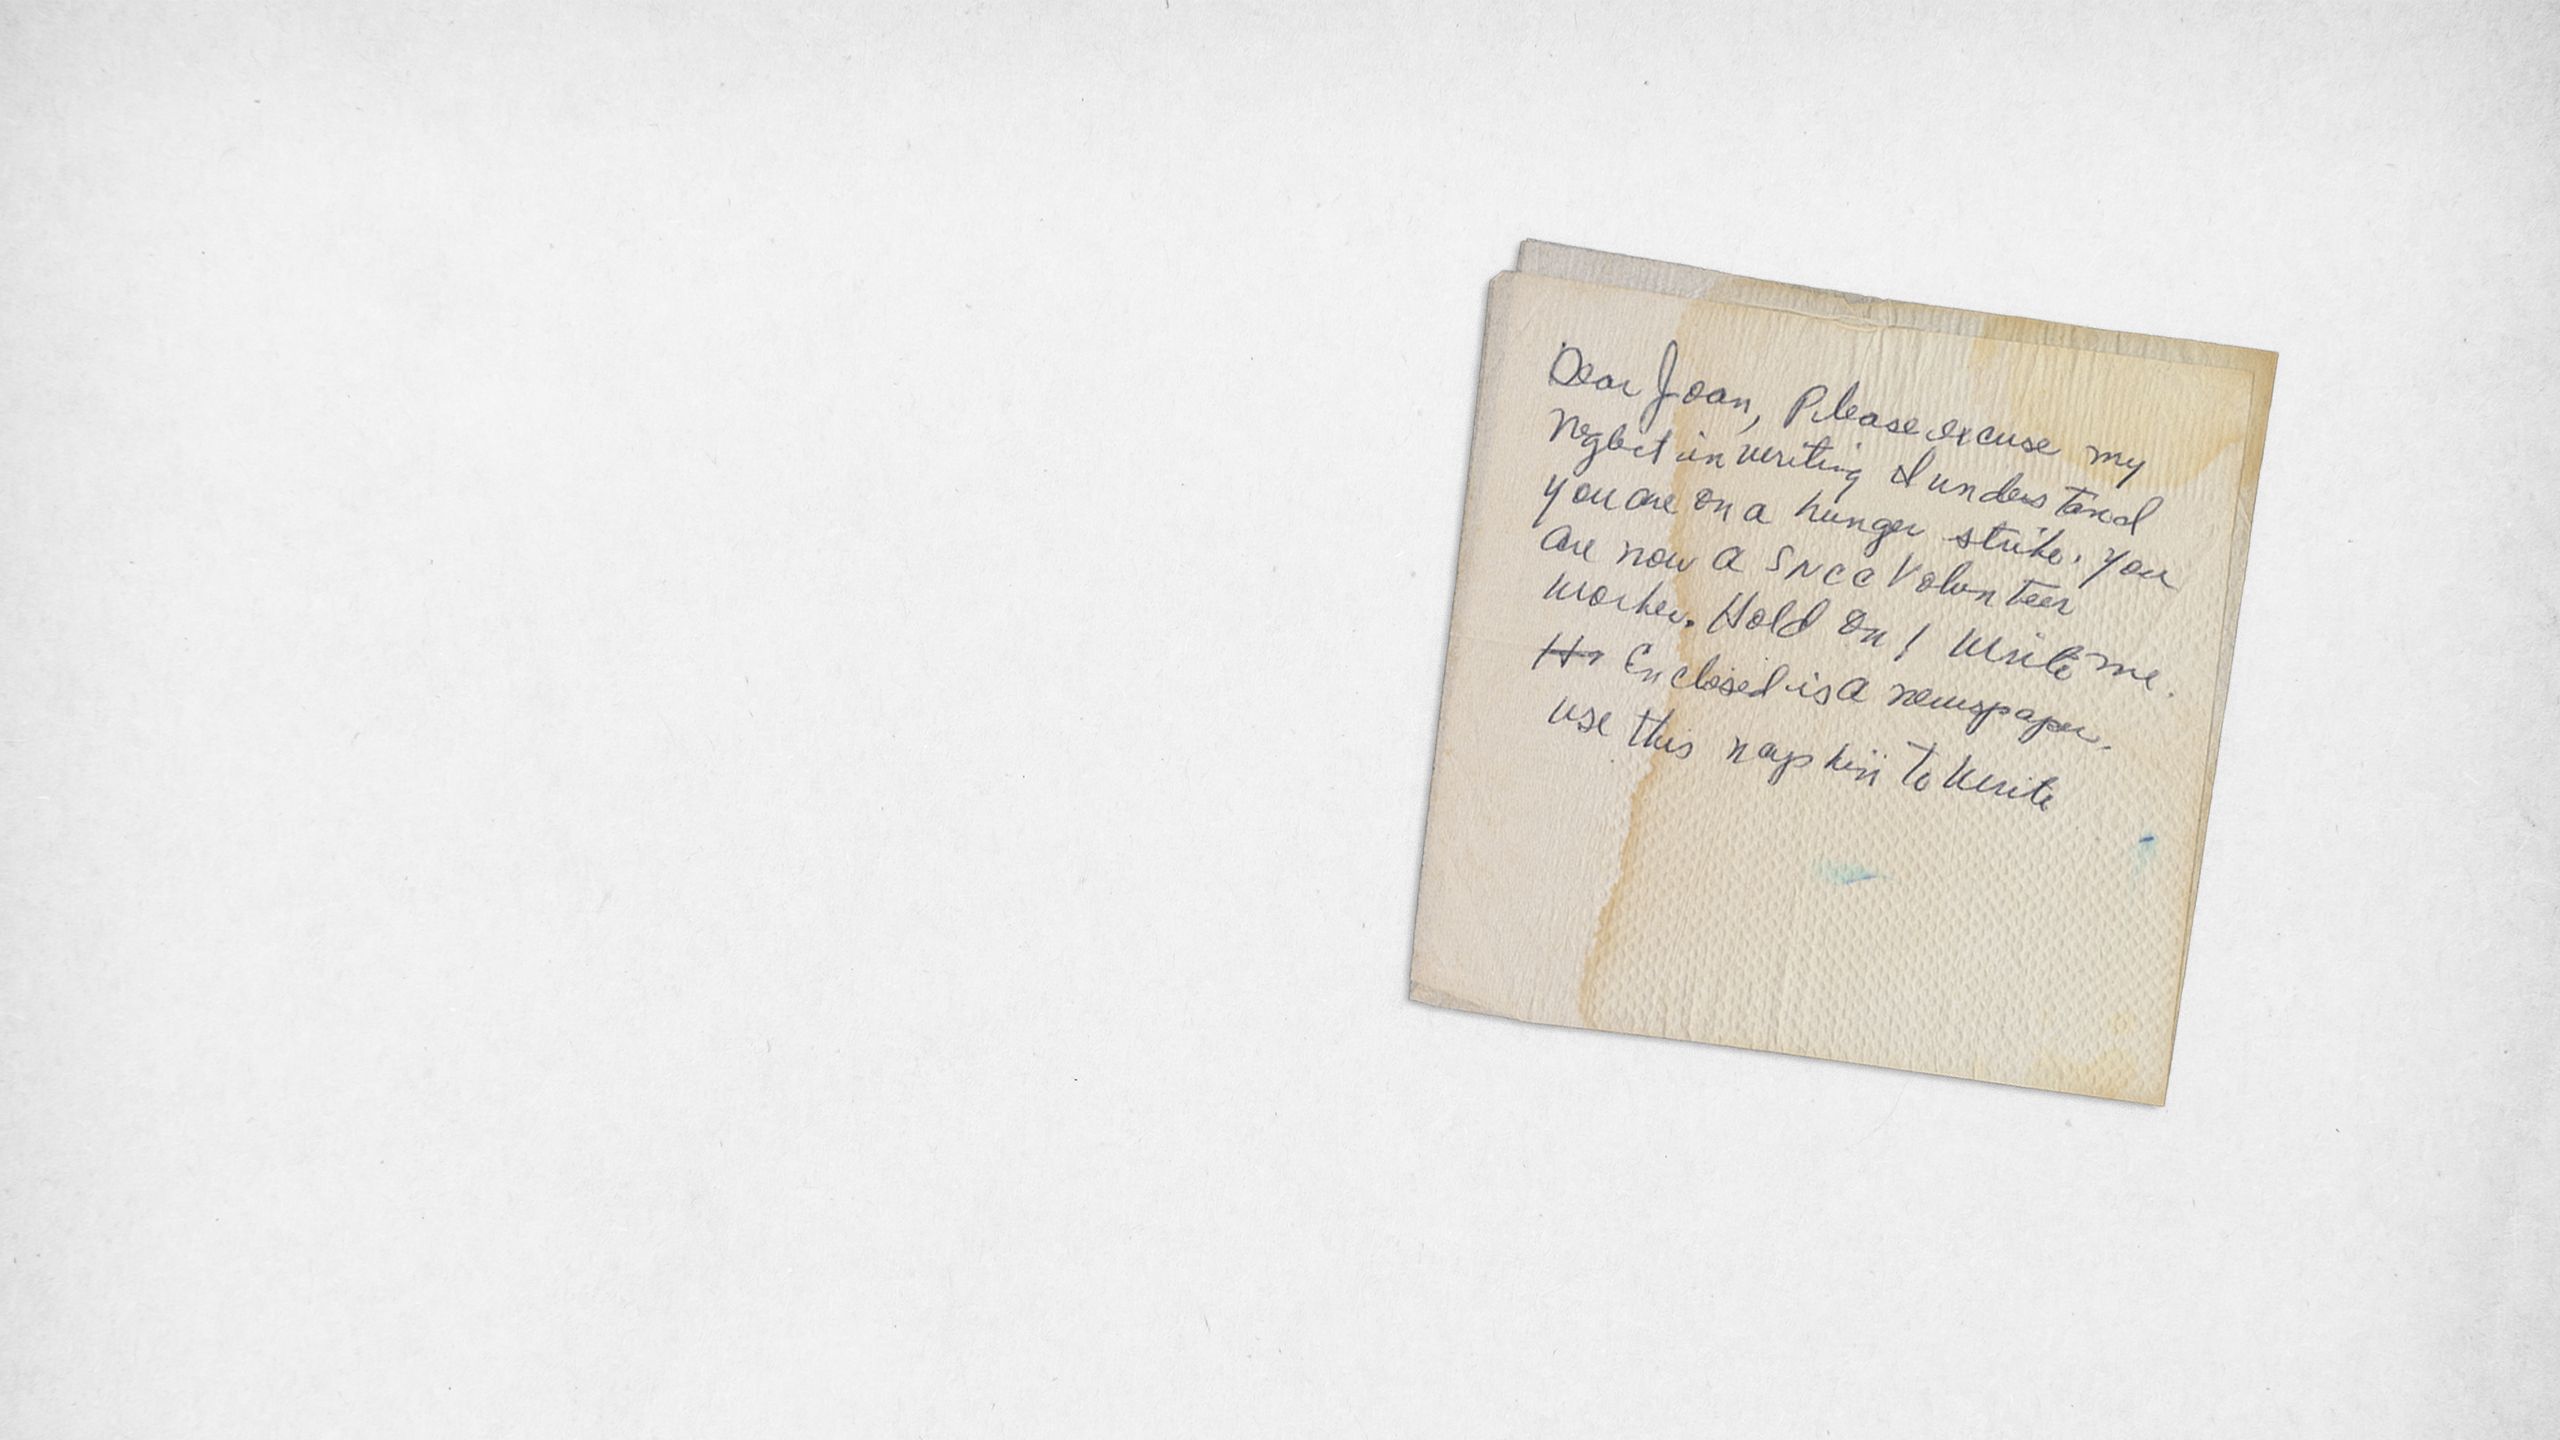 Dear Joan, Please excuse my
neglect in writing I understand
you are on a hunger strike. You
are now a SNCC Volunteer
worker. Hold on! Write me.
Enclosed is a newspaper.
use this napkin to write